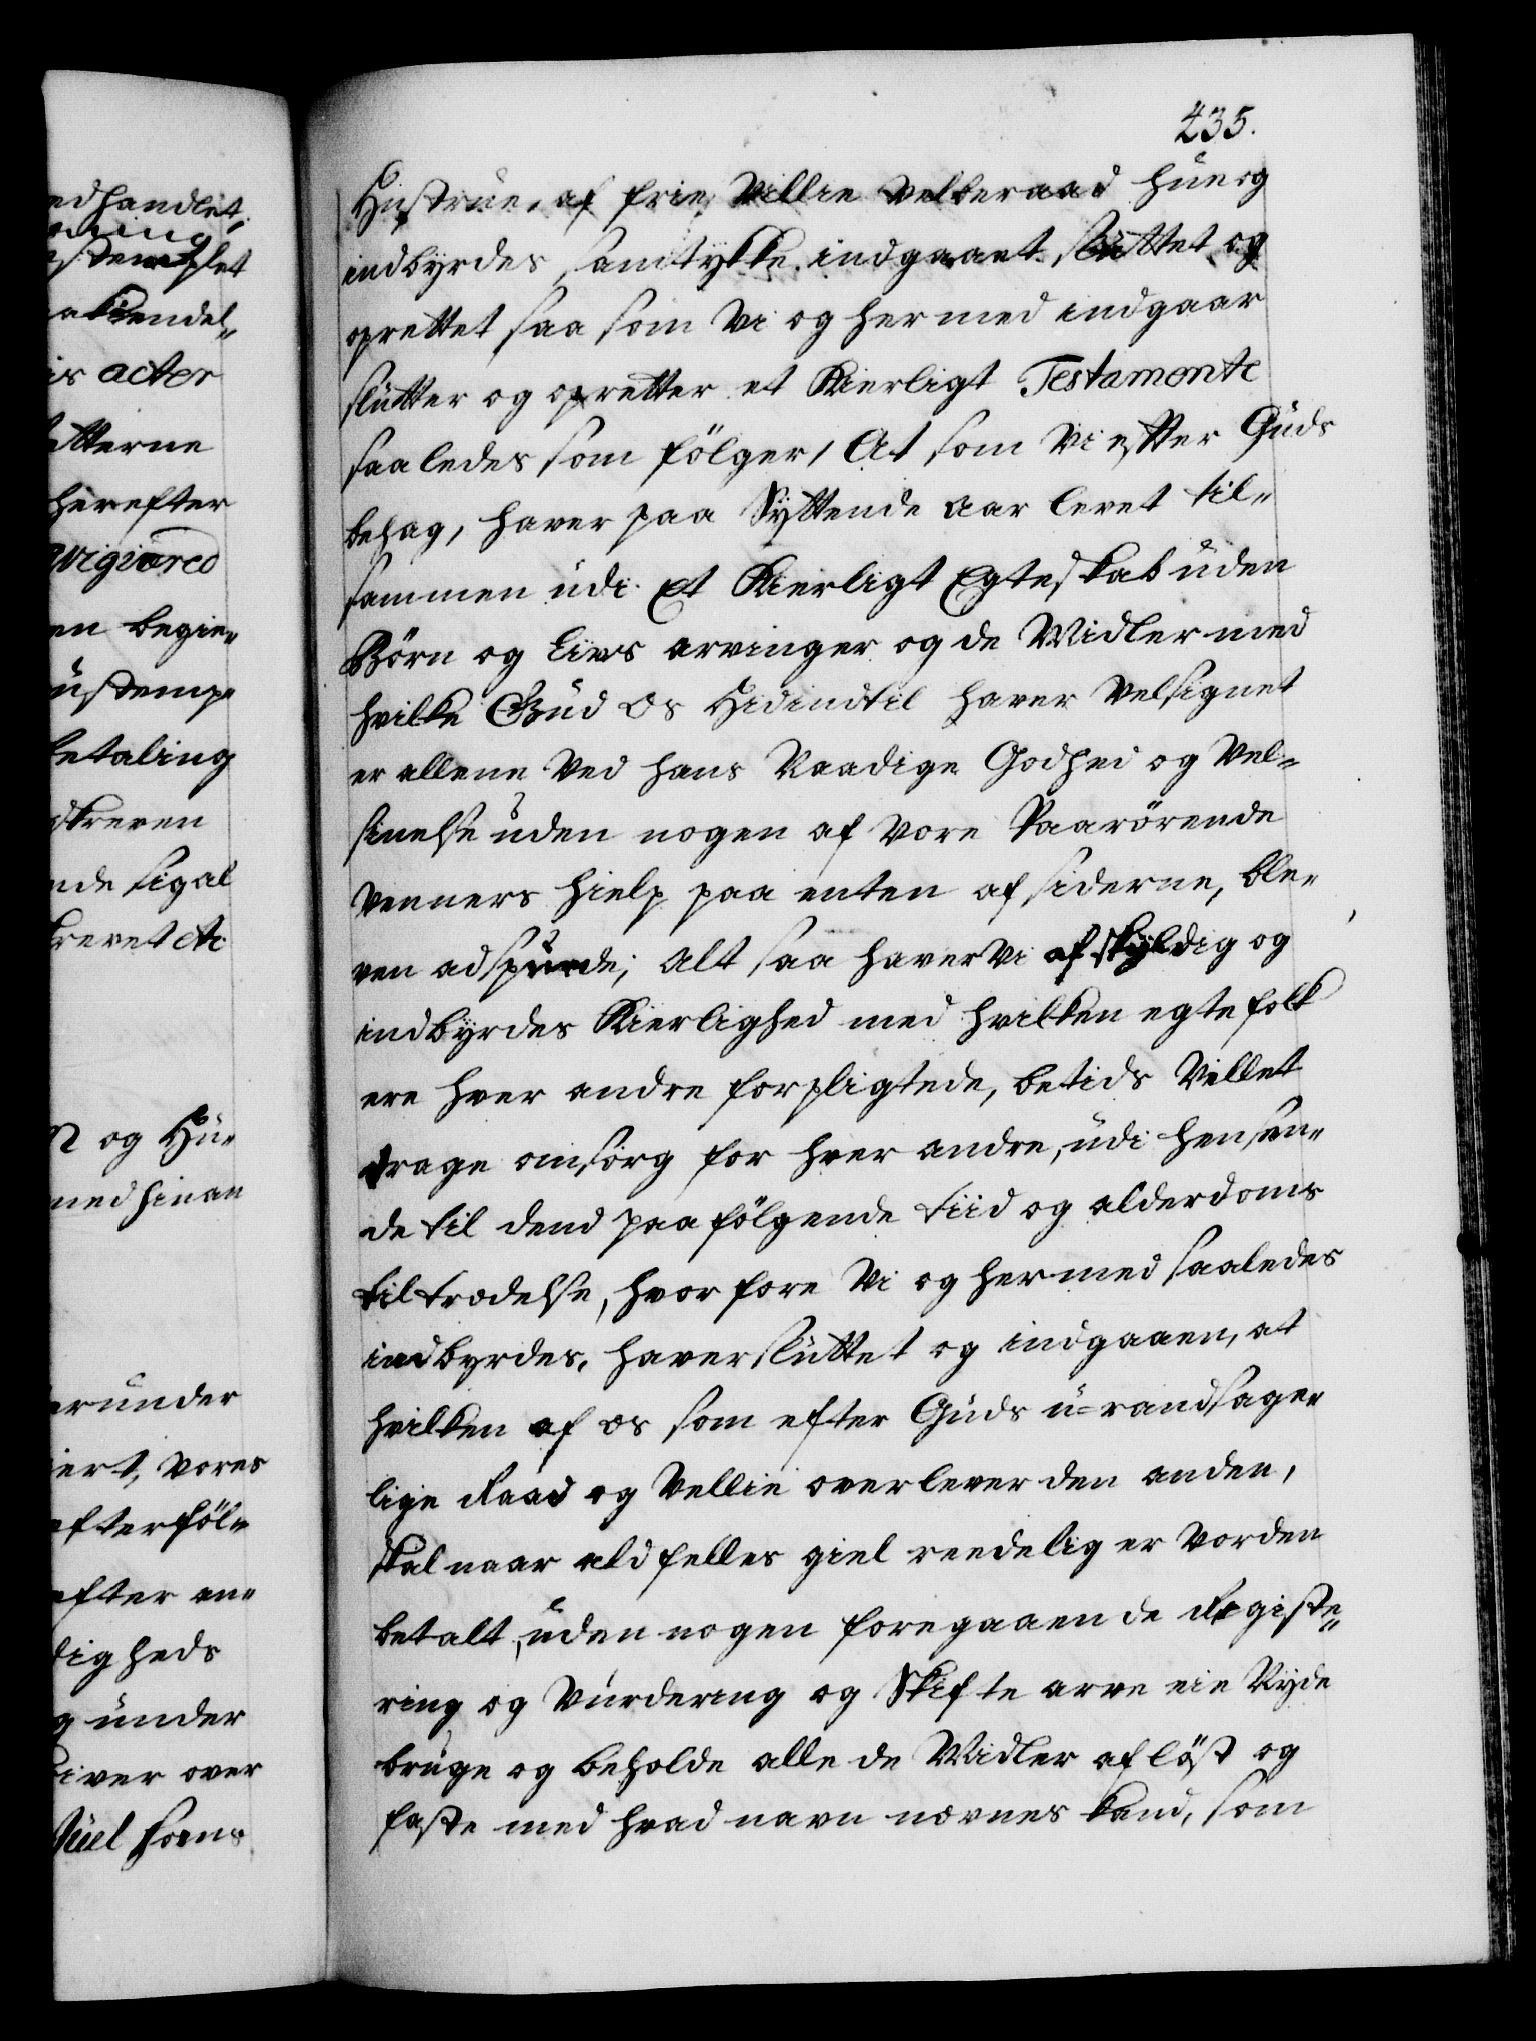 435.
Hustrue, af frie Villie velberaad hue og
indbyrdes samtykke indgaaet sluttet og
oprettet saa som Vi og hermed indgaar
slutter og opretter et Kierligt Testamente
saaledes som fölger, At som Vi efter Guds
behag, haver paa Syttende Aar levet til„
sammen udi Et Kierligt Egteskab uden
Börn og Livs arvinger og de Midler med
hvilke Gud os Hidindtil haver Velsignet
er allene Ved hans Naadige Godhed og Vel„
sinelse uden nogen af Vore Paarörende
Venners hielp paa enten af siderne, ble„
ven adspurde; Alt saa haver Vi af skyldig og
indbyrdes Kierlighed med hvilken egtefolk
ere hver andre forpligtede, betids Villet
drage omsorg for hver andre, udi henseen„
de til dend paafölgende tiid og alderdoms
tiltrædelse, hvorfore Vi og hermed saaledes
indbyrdes, haver sluttet og indgaaen, at
hvilken af os som efter Guds u=randsage„
lige Raad og Vellie overlever den anden,
skal naar ald felles giel reedelig er Vorden
betalt, uden nogen foregaaende Registe„
ring og Vurdering og Skifte arve eie Nyde
bruge og beholde alle de Midler aflöst og
faste med hvad navn nævnes kand, som
edhandlet,
acter
tterne
herefter
en begie„
betaling
nde sigal
og Hu„
under
iert, vores
efterföl„
efter an„
igheds
under
iver over